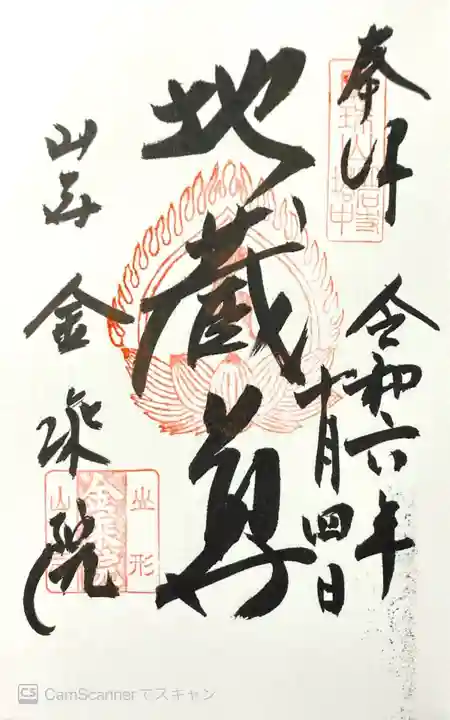 奉拝
令和六年
十月四日
地蔵尊
山寺
金乗院
山形
CS CamScannerでスキャン